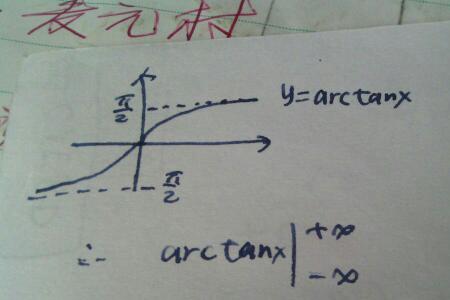 麦元材
π/2
y=arctanx
-π/2
∴ arctanx|+∞
-∞